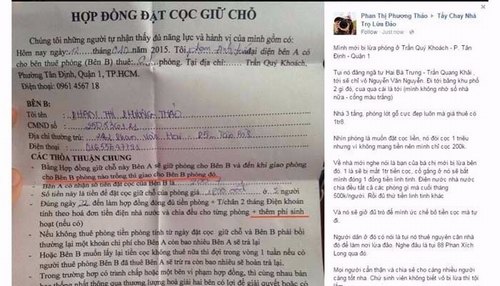 HỢP ĐỒNG ĐẶT CỌC GIỮ CHỖ
Chúng tôi những người tự nhận thấy đủ năng lực và hành vi của mình gồm có:
Hôm nay ngày tháng năm 2015. Tôi đại diện bên A có
cho bên thuê phòng (Bên B) thuê: phòng. Tại địa chỉ: Trần Quý Khoách,
Phường Tân Định, Quận 1, TP.HCM.
Điện thoại: 0961 4567 18
BÊN B:
Tôi tên PHAN THỊ PHƯƠNG THẢO
CMND số
Địa chỉ thường trú:
Điện thoại:
CÁC THỎA THUẬN CHUNG:
- Bằng Hợp đồng giữ chỗ này Bên A sẽ giữ phòng cho Bên B và đến khi giao phòng
cho Bên B phòng nào trống thì giao cho Bên B phòng đó.
- Bên A có nhận số tiền đặt cọc của Bên B là
- Số tiền này là tiền để đặt cọc giữ chỗ của phòng giá người
- Đúng ngày làm hợp đồng đóng đủ tiền phòng + 2 tháng Điện khoán
tính theo hoá đơn tiền điện nhà nước và chia đều cho từng phòng + thêm phí sinh
hoạt (nếu có)
- Nếu không thuê phòng tiền phòng tính từ ngày đặt cọc giữ chỗ và Bên B phải bồi
thường lại một khoản chi phí cho Bên A còn bao nhiêu Bên A sẽ trả lại
- Hoặc Bên B muốn lấy lại tiền cọc không thuê nữa thì đợi trong vòng 1 tuần nếu có
người thuê phòng Bên B đã thuê Bên A sẽ trừ ra còn bao nhiêu sẽ hoàn trả lại.
- Trong trường hợp có tranh chấp hoặc một bên vi phạm hợp đồng, thì cùng nhau bàn
Phan Thị Phương Thảo ▸ Tẩy Chay Nhà
Trọ Lừa Đảo
Follow · Just now
Mình mới bị lừa phòng ở Trần Quý Khoách - P. Tân
Định - Quận 1
Tụi nó đăng ngã tư Hai Bà Trưng - Trần Quang Khải ,
tới sẽ chỉ vô Nguyễn Văn Nguyễn. Đi tới băng khu phố
2 gì đó, cua qua cái là tới (mình không nhớ số nhà
nữa - cổng màu trắng)
Nhà 3 tầng, phòng lót gỗ cực đẹp luôn mà giá thuê có
1tr8.
Nhìn phòng là muốn đặt cọc liền, nó đòi cọc 1 triệu
nhưng vì không mang tiền nên mình chỉ cọc 200k.
Về nhà mới nghe nói là bạn của bà chị mới bị lừa bên
đó. 1 là sẽ bị mất 1tr tiền cọc, cố gắng ở nó sẽ bắt
mình đóng 1 đống tiền linh tinh. Điện nước nhà nước
chia đều tất cả các phòng gì mà cuối tháng
500k/người. Rồi đủ thứ tiền linh tinh khác
Và nó sẽ giở đủ trò để mình ức chế bỏ tiền cọc mà tự
đi.
Người dân ở đó có nói là tụi nó thuê nguyên căn nhà
đó để làm nơi lừa đảo. Nghe đâu là tụi 88 Phan Xích
Long qua đó.
Mọi người cẩn thận và chia sẻ cho càng nhiều người
càng tốt nha. Chứ sinh viên không biết vô bị lừa thì tội
lắm.